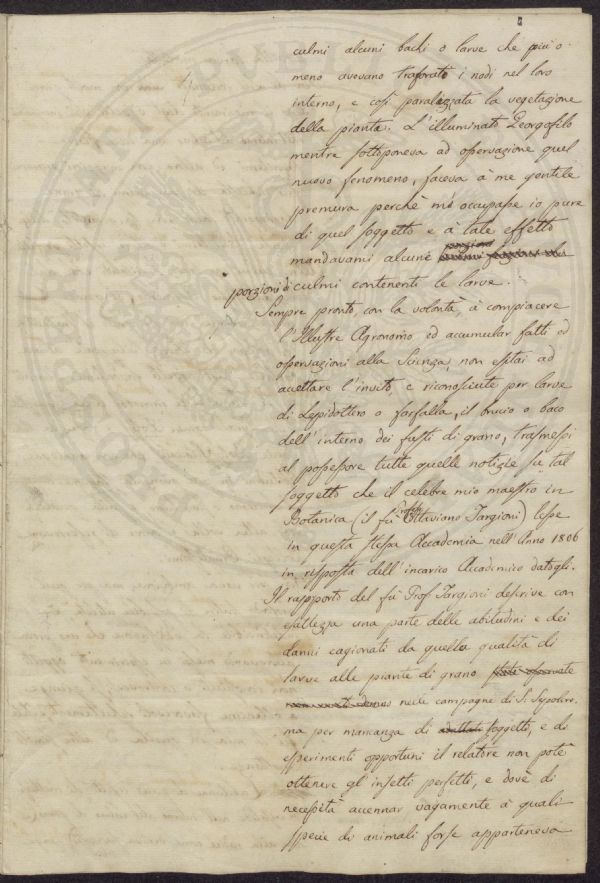 culmi alcuni bachi o larve che più o
meno avevano traforato i nodi nel loro
interno, e così paralizzata la vegetazione
della pianta. L'illuminato Georgofilo
mentre sottoponeva ad osservazione quel
nuovo fenomeno, faceva à me gentile
premura perchè mi occupasse io pure
di quel soggetto e à tale effetto
porzioni
mandavami alcune
porzioni di culmi contenenti le larve.
Sempre pronto, con la volontà, à compiacere
l'Illustre Agronomo ed accumular fatti ed
osservazioni alla Scienza, non esitai ad
accettare l'invito e riconosciute per larve
di Lepidottero o farfalla, il brucio o baco
dell'interno dei fusti di grano, trasmessi
al possessore tutte quelle notizie sù tal
soggetto che il celebre mio maestro in
Botanica (il fù Ottaviano Targioni) lesse
in questa stessa Accademia nell'Anno 1806
in risposta dell'incarico Accademico datogli.
Il rapporto del fù Prof Targioni descrive con
esattezza una parte delle abitudini e dei
danni cagionati da quella qualità di
larve alle piante di grano state osservate
nelle campagne di S. Sepolcro.
ma per mancanza di adattati soggetto, e di
esperimenti opportuni il relatore non potè
ottenere gl'insetti perfetti, e dovè di
necessità accennar vagamente à quali
specie di animali forse apparteneva